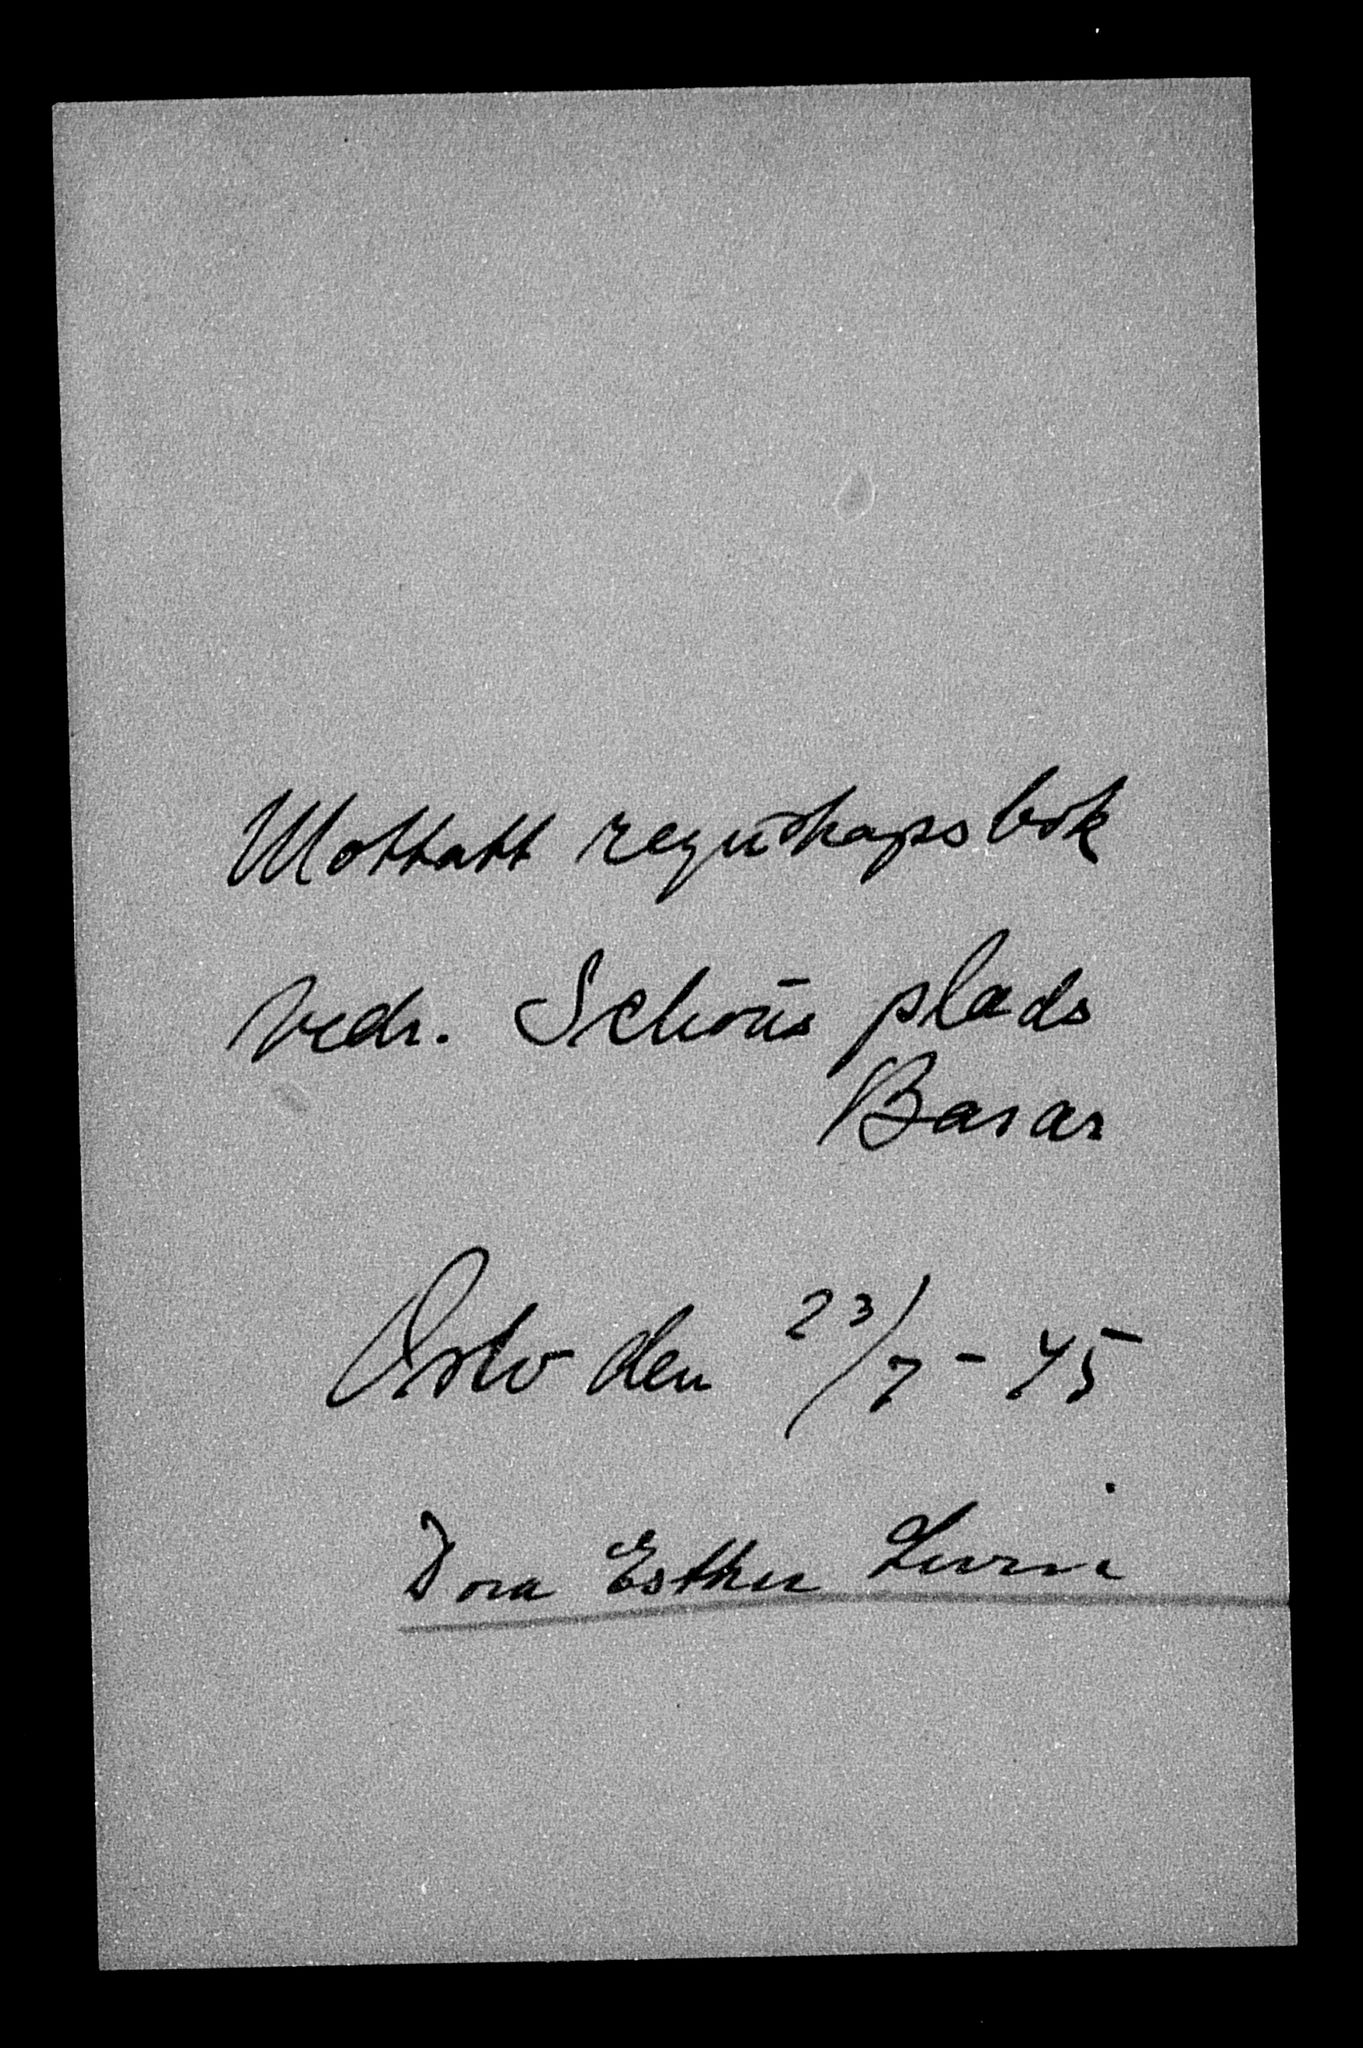 Mottatt regnskapsbok
vedr. Schous plads
Basar
Oslo den 23/7 - 45
Dora Esther Lurie